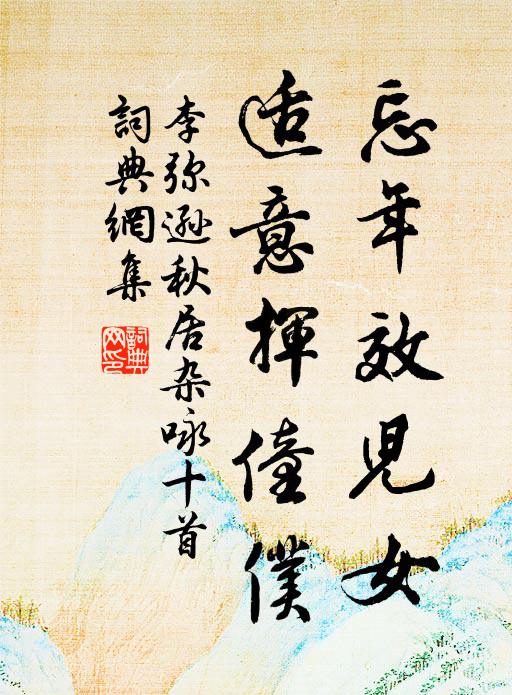 忘年效児女
适意揮僮僕
李弥遜秋居杂咏十首
詞典網集
詞典網印